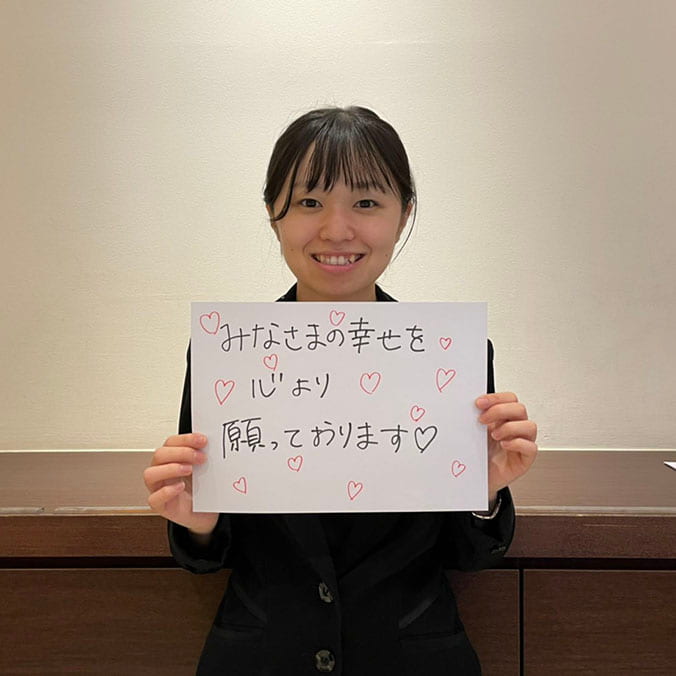 みなさまの幸せを
心より
願っております♡